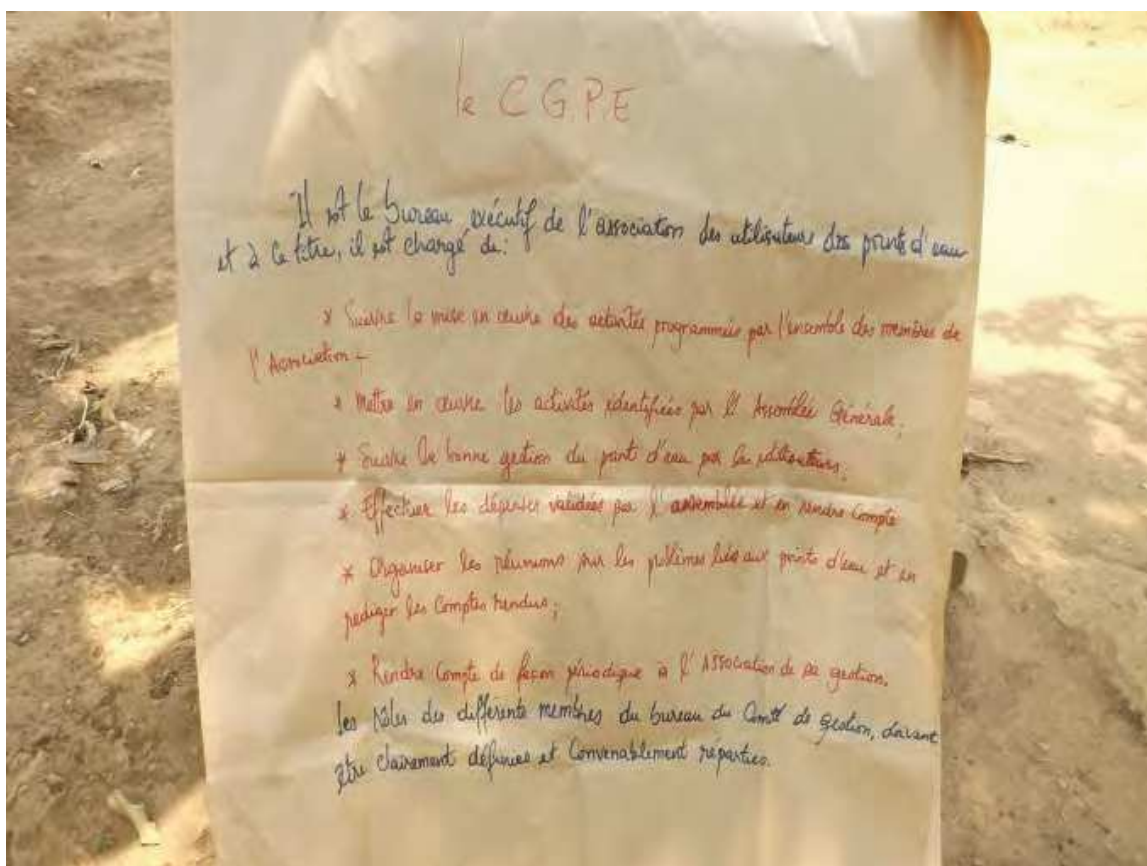 le C.G.P.E
Il est le bureau exécutif de l'association des utilisateurs des points d'eau
et à ce titre, il est chargé de:
* Suivre la mise en œuvre des activités programmées par l'ensemble des membres de
l'Association -
* Mettre en œuvre les activités identifiées par l'Assemblée Générale;
* Suivre la bonne gestion du point d'eau par les utilisateurs,
* Effectuer les dépenses validées par l'assemblée et en rendre Compte
* Organiser les réunions sur les problèmes liés aux points d'eau et en
rediger les Comptes rendus;
* Rendre Compte de façon périodique à l'Association de sa gestion.
Les rôles des différents membres du bureau du Comité de gestion, doivent
être clairement définies et Convenablement réparties.